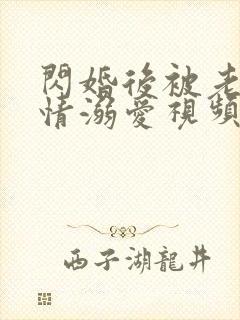 閃婚後被老
情溺愛視頻
西子湖龍井